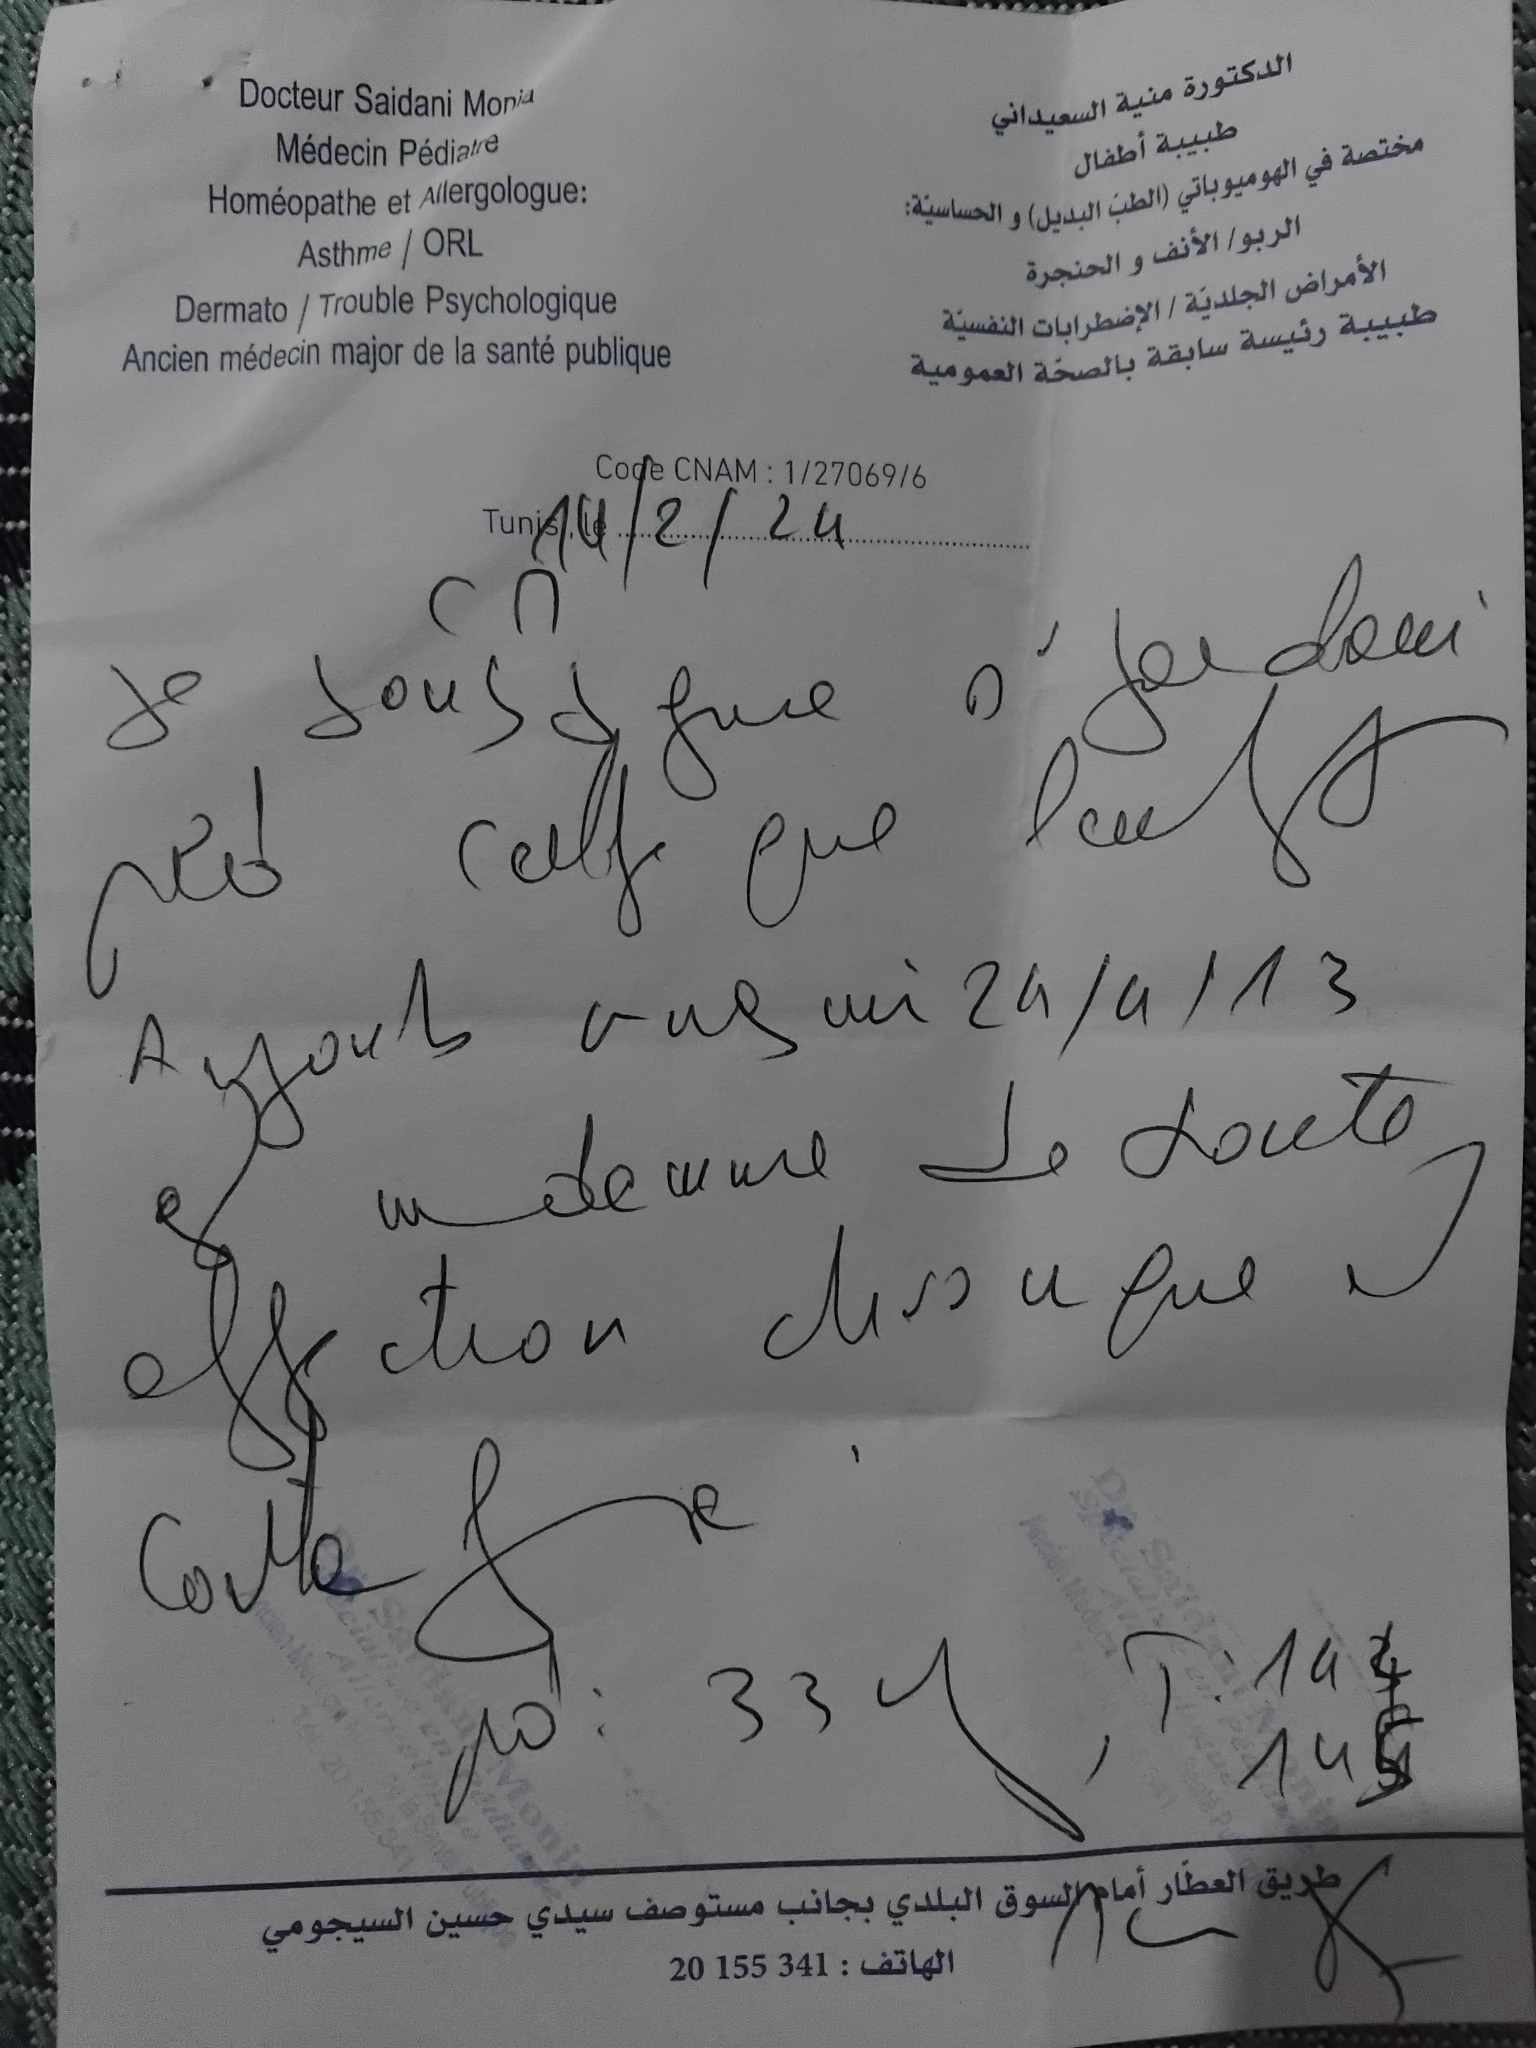 Docteur Saidani Monia
Médecin Pédiatre
Homéopathe et Allergologue:
Asthme / ORL
Dermato / Trouble Psychologique
Ancien médecin major de la santé publique
الدكتورة منية السعيداني
طبيبة أطفال
مختصة في الهوميوباتي (الطبّ البديل) و الحساسيّة:
الربو/ الأنف و الحنجرة
الأمراض الجلديّة / الإضطرابات النفسيّة
طبيبة رئيسة سابقة بالصحّة العمومية
Code CNAM : 1/27069/6
Tunis, le 14/2/24
CM
Je soussigne Dr Saidani
péd certifie que l'enfant
24/4/13
est indemne de toute
affection chronique
contagieuse
pd : 33 kg, T: 142
طريق العطّار أمام السوق البلدي بجانب مستوصف سيدي حسين السيجومي
الهاتف : 341 155 20